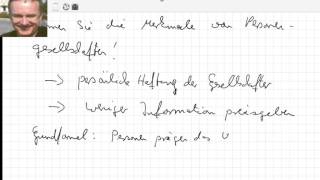 nen Sie die Merkmale von Personen-
gesellschaften!
→ persönliche Haftung der Gesellschafter
→ weniger Information preisgeben
Grundformel: Personen prägen das U